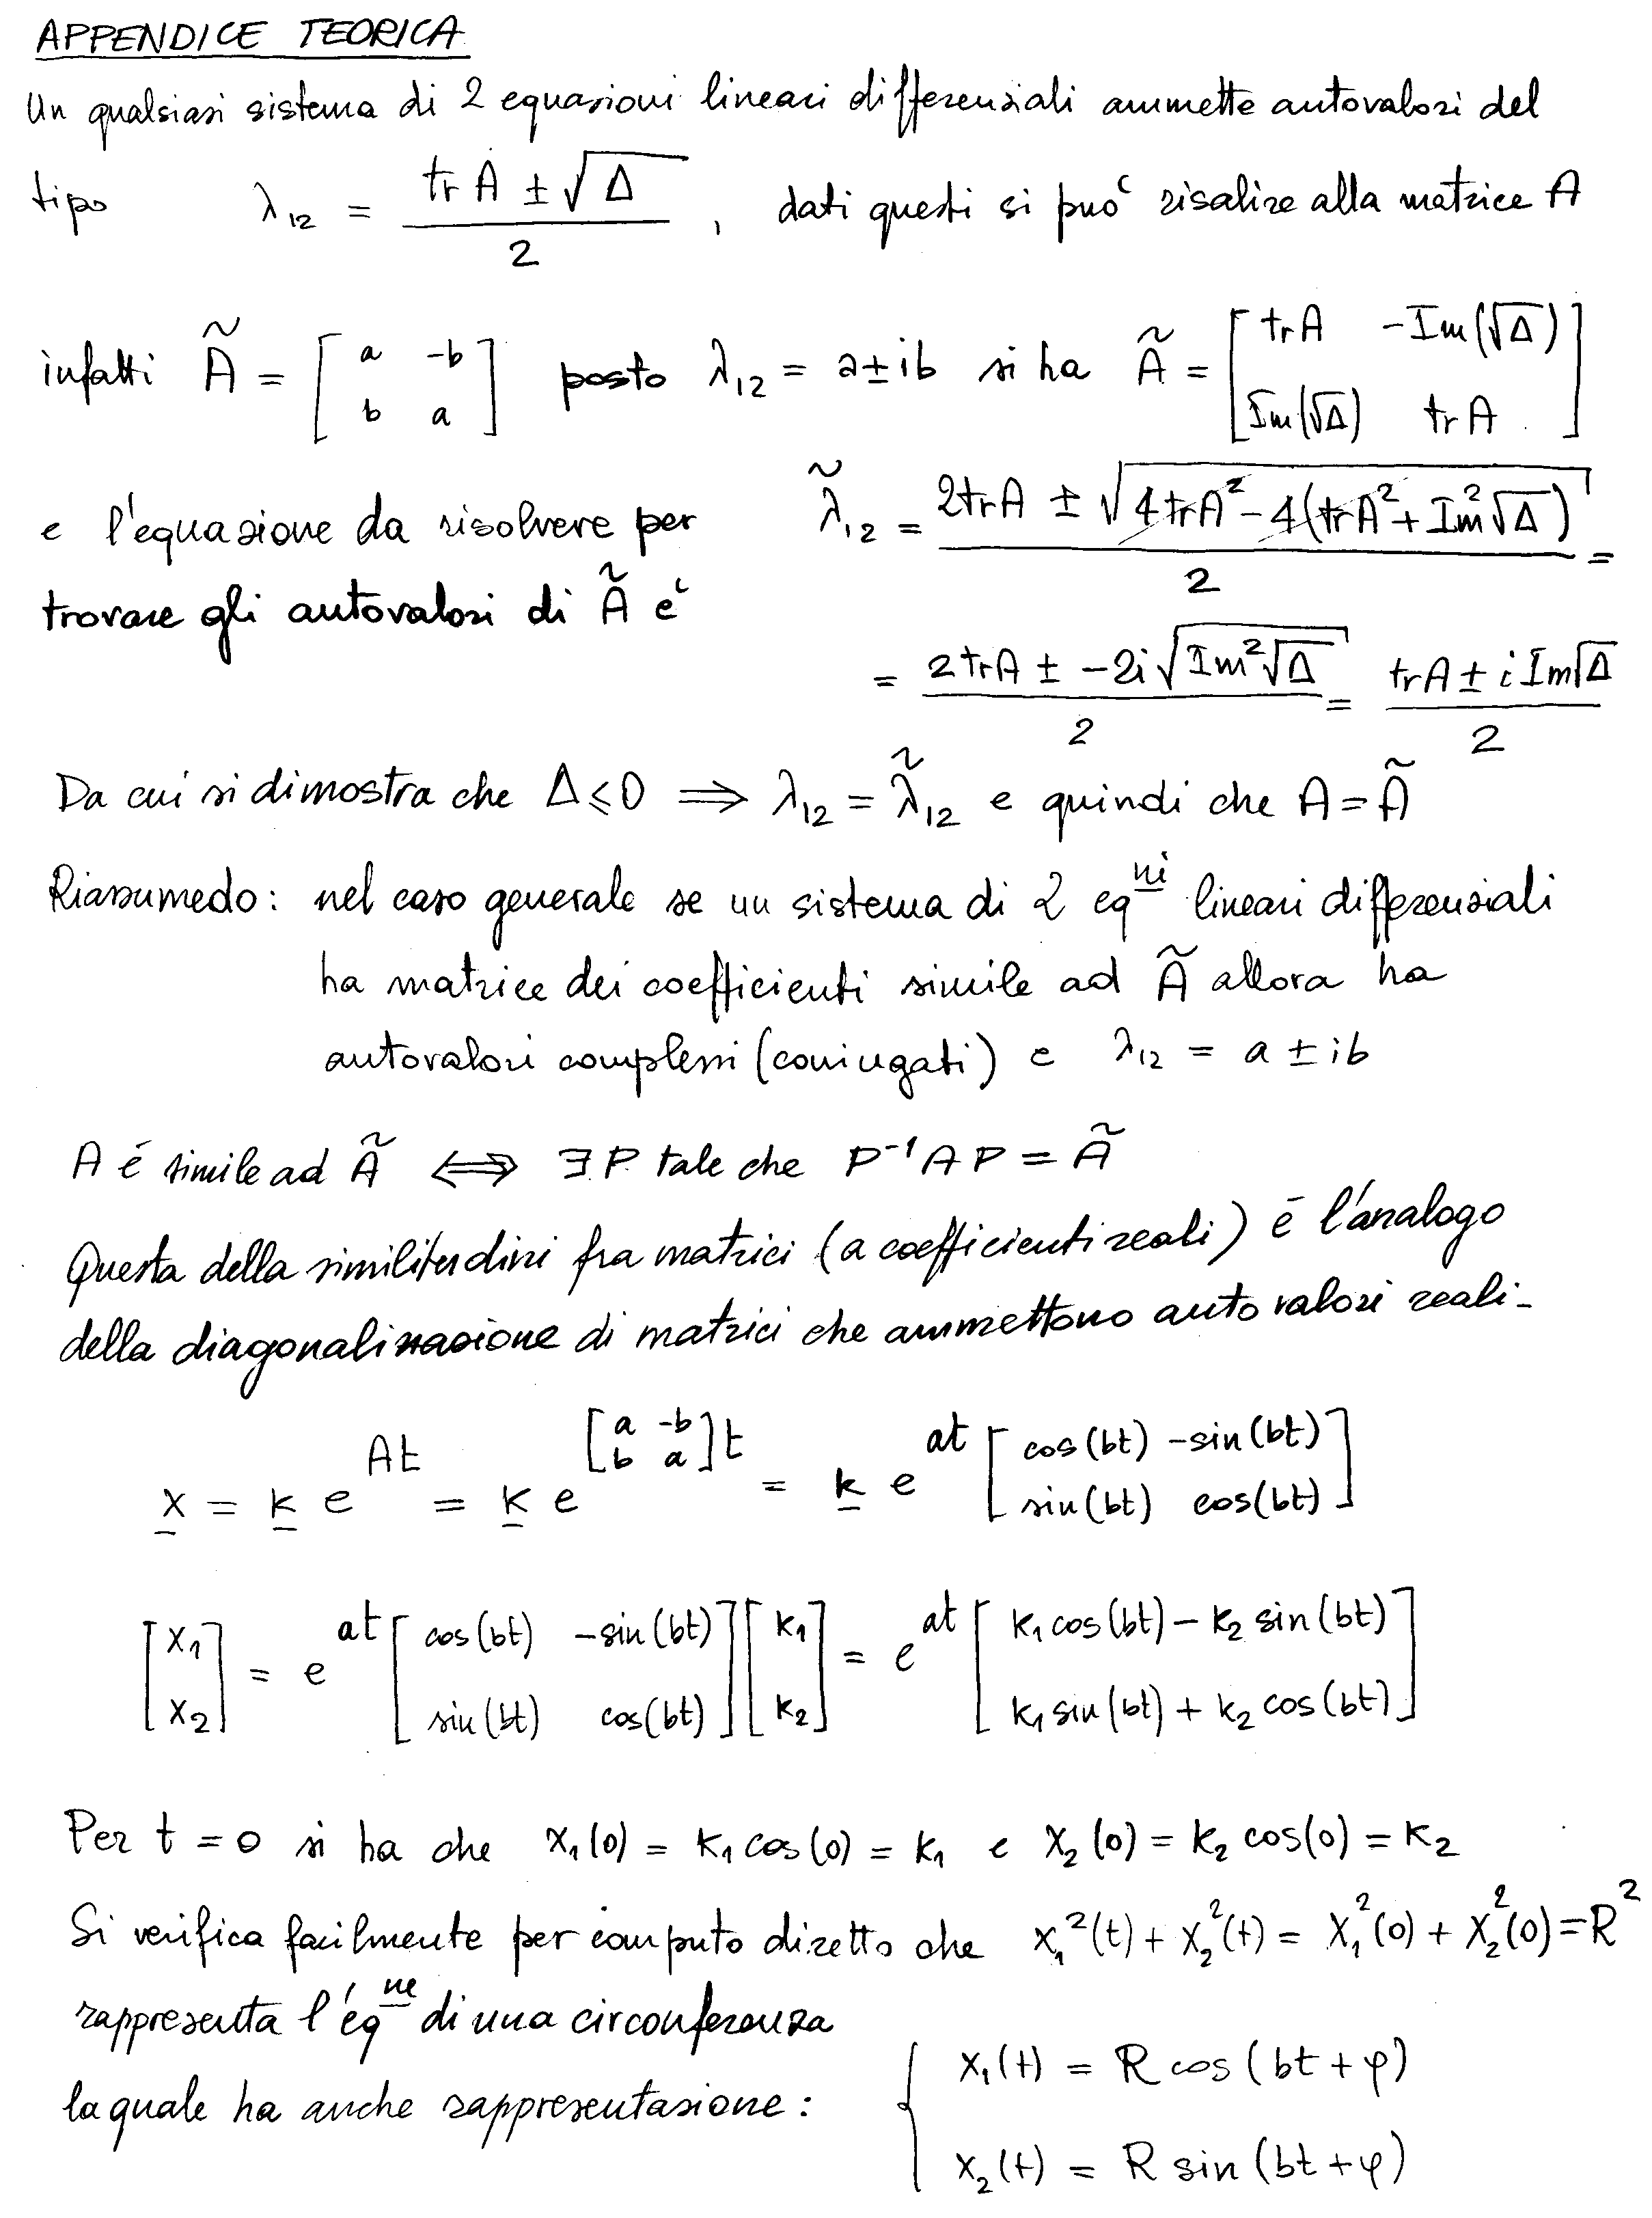 APPENDICE TEORICA
Un qualsiasi sistema di 2 equazioni lineari differenziali ammette autovalori del
tipo λ₁₂ = (tr A ± √Δ)/2 , dati questi si può risalire alla matrice A
infatti Ã = [a -b; b a] posto λ₁₂ = a ± ib si ha Ã = [trA -Im(√Δ); Im(√Δ) trA]
e l'equazione da risolvere per
trovare gli autovalori di Ã è
λ̃₁₂ = (2trA ± √(4trA² - 4(trA² + Im²√Δ)))/2 =
= (2trA ± -2i√(Im²√Δ))/2 = (trA ± i Im√Δ)/2
Da cui si dimostra che Δ ≤ 0 ⟹ λ₁₂ = λ̃₁₂ e quindi che A = Ã
Riassumedo: nel caso generale se un sistema di 2 eq.ⁿⁱ lineari differenziali
ha matrice dei coefficienti simile ad Ã allora ha
autovalori complessi (coniugati) e λ₁₂ = a ± ib
A é simile ad Ã ⟺ ∃ P tale che P⁻¹AP = Ã
Questa della similitudini fra matrici (a coefficienti reali) é l'analogo
della diagonalizzazione di matrici che ammettono autovalori reali-
x = k e^(At) = k e^([a -b; b a]t) = k e^(at) [cos(bt) -sin(bt); sin(bt) cos(bt)]
[x₁; x₂] = e^(at) [cos(bt) -sin(bt); sin(bt) cos(bt)] [k₁; k₂] = e^(at) [k₁cos(bt) - k₂ sin(bt); k₁ sin(bt) + k₂ cos(bt)]
Per t = 0 si ha che x₁(0) = k₁ cos(0) = k₁ e x₂(0) = k₂ cos(0) = k₂
Si verifica facilmente per computo diretto che x₁²(t) + x₂²(t) = x₁²(0) + x₂²(0) = R²
rappresenta l'eqⁿᵉ di una circonferenza
la quale ha anche rappresentazione:
{ x₁(t) = R cos(bt + φ)
x₂(t) = R sin(bt + φ)